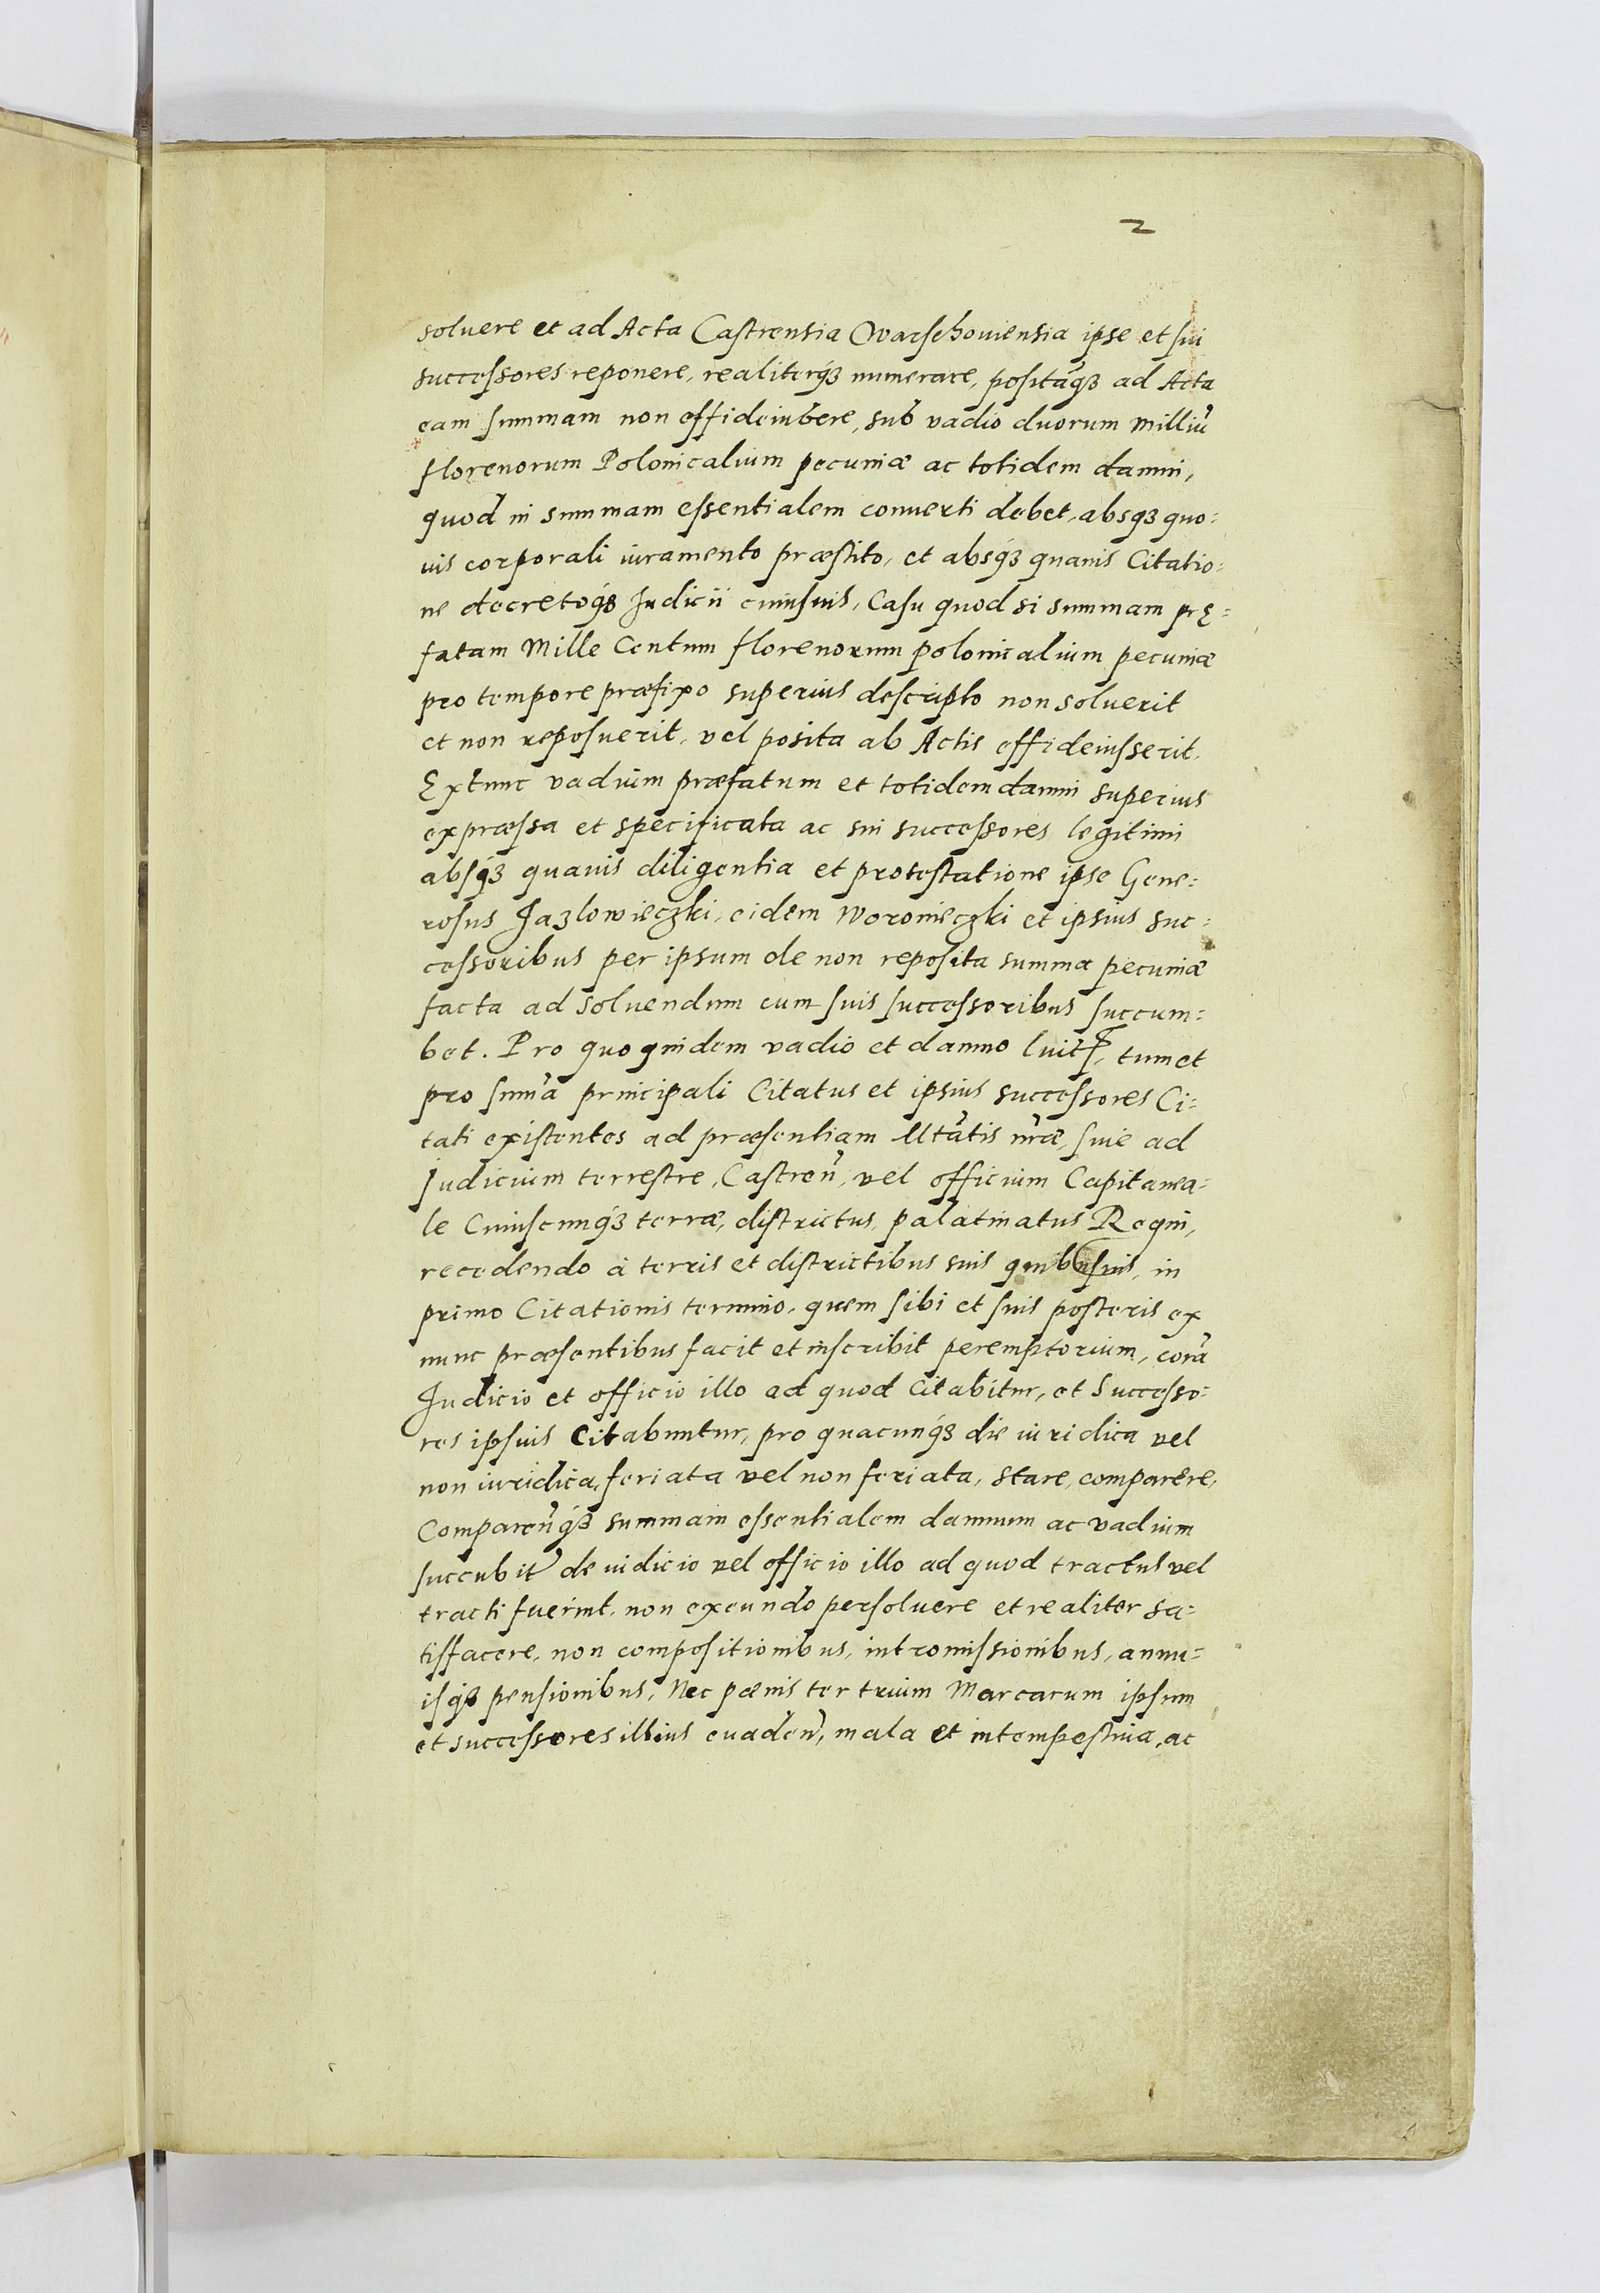 2
soluere et ad Acta Castrensia Warschouiensia ipse et sui
successores reponere, realiterq́3 numerare, positāq3 ad Acta
eam summam non effideiubere, sub vadio duorum milliū
florenorum Polonicalium pecuniæ ac totidem damni,
quod in summam essentialem conuerti debet, absq3 quo:
uis corporali iuramento præstito, et absq́3 quauis Citatio:
ne decretoq́3 Judicii cuiusuis, Casu quod si summam prę:
fatam Mille Centum florenorum polonicalium pecuniæ
pro tempore præfixo superius descripto non soluerit
et non reposuerit, vel posita ab Actis effideiusserit.
Extunc vadium præfatum et totidem damni superius
expræssa et specificata ac sui successores legitimi
absq́3 quauis diligentia et protestatione ipse Gene:
rosus Jazlowieczki, eidem Woronieczki et ipsius suc:
cessoribus per ipsum de non reposita summa pecuniæ
facta ad soluendum cum suis successoribus succum:
bet. Pro quo quidem vadio et damno tum et
pro sum̃a principali Citatus et ipsius successores Ci:
tati existentes ad præsentiam Mtãtis nr̃æ, siue ad
Judicium terrestre, Castren̄, vel officium Capitanea:
le Cuiuscunq́3 terræ, districtus, palatinatus Regni,
recedendo à terris et districtibus suis quibusuis, in
primo Citationis termino, quem sibi et suis posteris ex
nunc præsentibus facit et inscribit peremptorium, corā
Judicio et officio illo ad quod Citabitur, et Successo:
res ipsius Citabuntur, pro quacunq́3 die iuridica vel
non iuridica, feriata vel non feriata, stare, comparere,
Comparen̄q́3 summam essentialem damnum ac vadium
succubit̃ de iudicio vel officio illo ad quod tractus vel
tracti fuerint, non exeundo persoluere et realiter sa:
tisfacere, non compositionibus, intromissionibus, annu:
isq́3 pensionibus, Nec pœnis ter trium Marcarum ipsum
et successores illius euaden̄, mala et intempestiua, ac